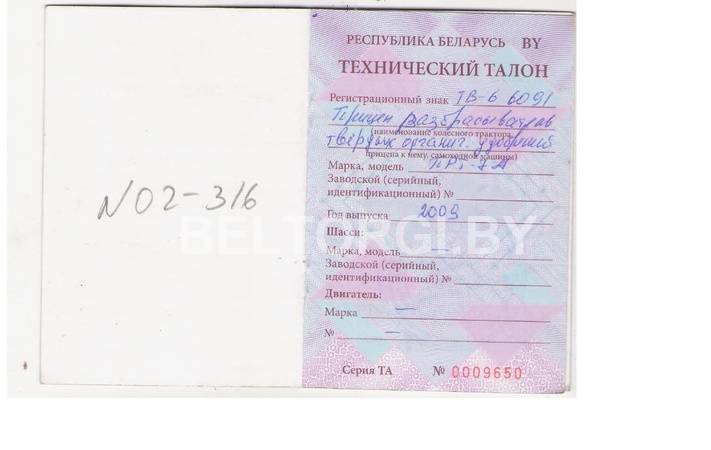 N02-316
РЕСПУБЛИКА БЕЛАРУСЬ BY
ТЕХНИЧЕСКИЙ ТАЛОН
Регистрационный знак ТВ-6 6091
Прицеп разбрасыватель
(наименование колесного трактора,
твердых органич. удобрений
прицепа к нему, самоходной машины)
Марка, модель ПРТ-7А
Заводской (серийный,
идентификационный) №
Год выпуска 2009
Шасси:
Марка, модель —
Заводской (серийный,
идентификационный) №
Двигатель:
Марка —
№ —
Серия ТА № 0009650
BELTORGI.BY